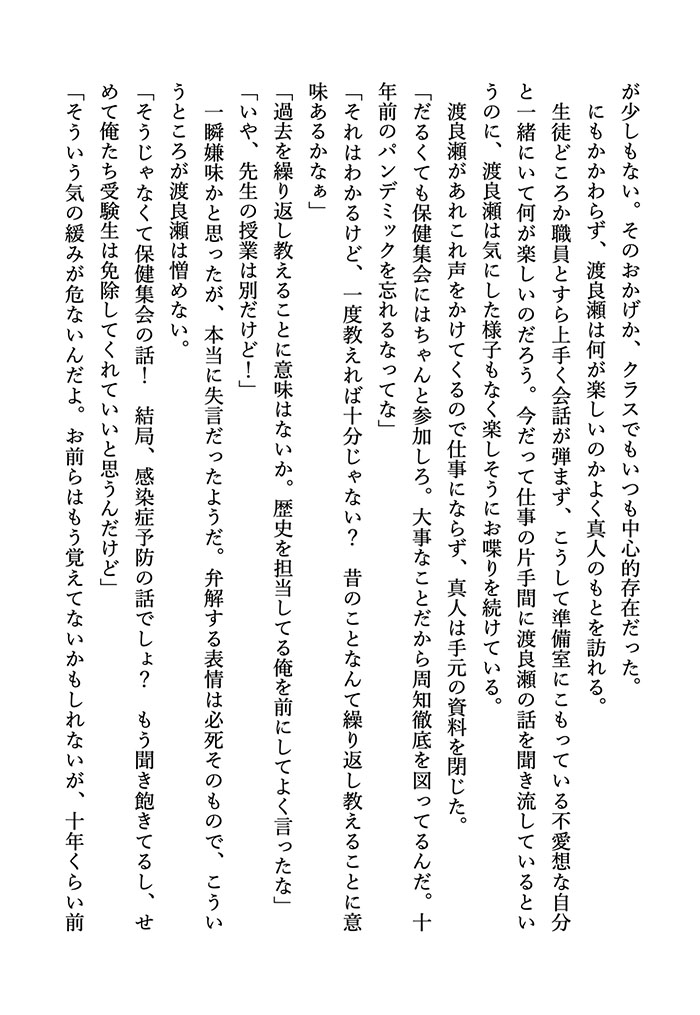 が少しもない。そのおかげか、クラスでもいつも中心的存在だった。
　にもかかわらず、渡良瀬は何が楽しいのかよく真人のもとを訪れる。
　生徒どころか職員とすら上手く会話が弾まず、こうして準備室にこもっている不愛想な自分
と一緒にいて何が楽しいのだろう。今だって仕事の片手間に渡良瀬の話を聞き流しているとい
うのに、渡良瀬は気にした様子もなく楽しそうにお喋りを続けている。
　渡良瀬があれこれ声をかけてくるので仕事にならず、真人は手元の資料を閉じた。
「だるくても保健集会にはちゃんと参加しろ。大事なことだから周知徹底を図ってるんだ。十
年前のパンデミックを忘れるなってな」
「それはわかるけど、一度教えれば十分じゃない？　昔のことなんて繰り返し教えることに意
味あるかなぁ」
「過去を繰り返し教えることに意味はないか。歴史を担当してる俺を前にしてよく言ったな」
「いや、先生の授業は別だけど！」
　一瞬嫌味かと思ったが、本当に失言だったようだ。弁解する表情は必死そのもので、こうい
うところが渡良瀬は憎めない。
「そうじゃなくて保健集会の話！　結局、感染症予防の話でしょ？　もう聞き飽きてるし、せ
めて俺たち受験生は免除してくれていいと思うんだけど」
「そういう気の緩みが危ないんだよ。お前らはもう覚えてないかもしれないが、十年くらい前